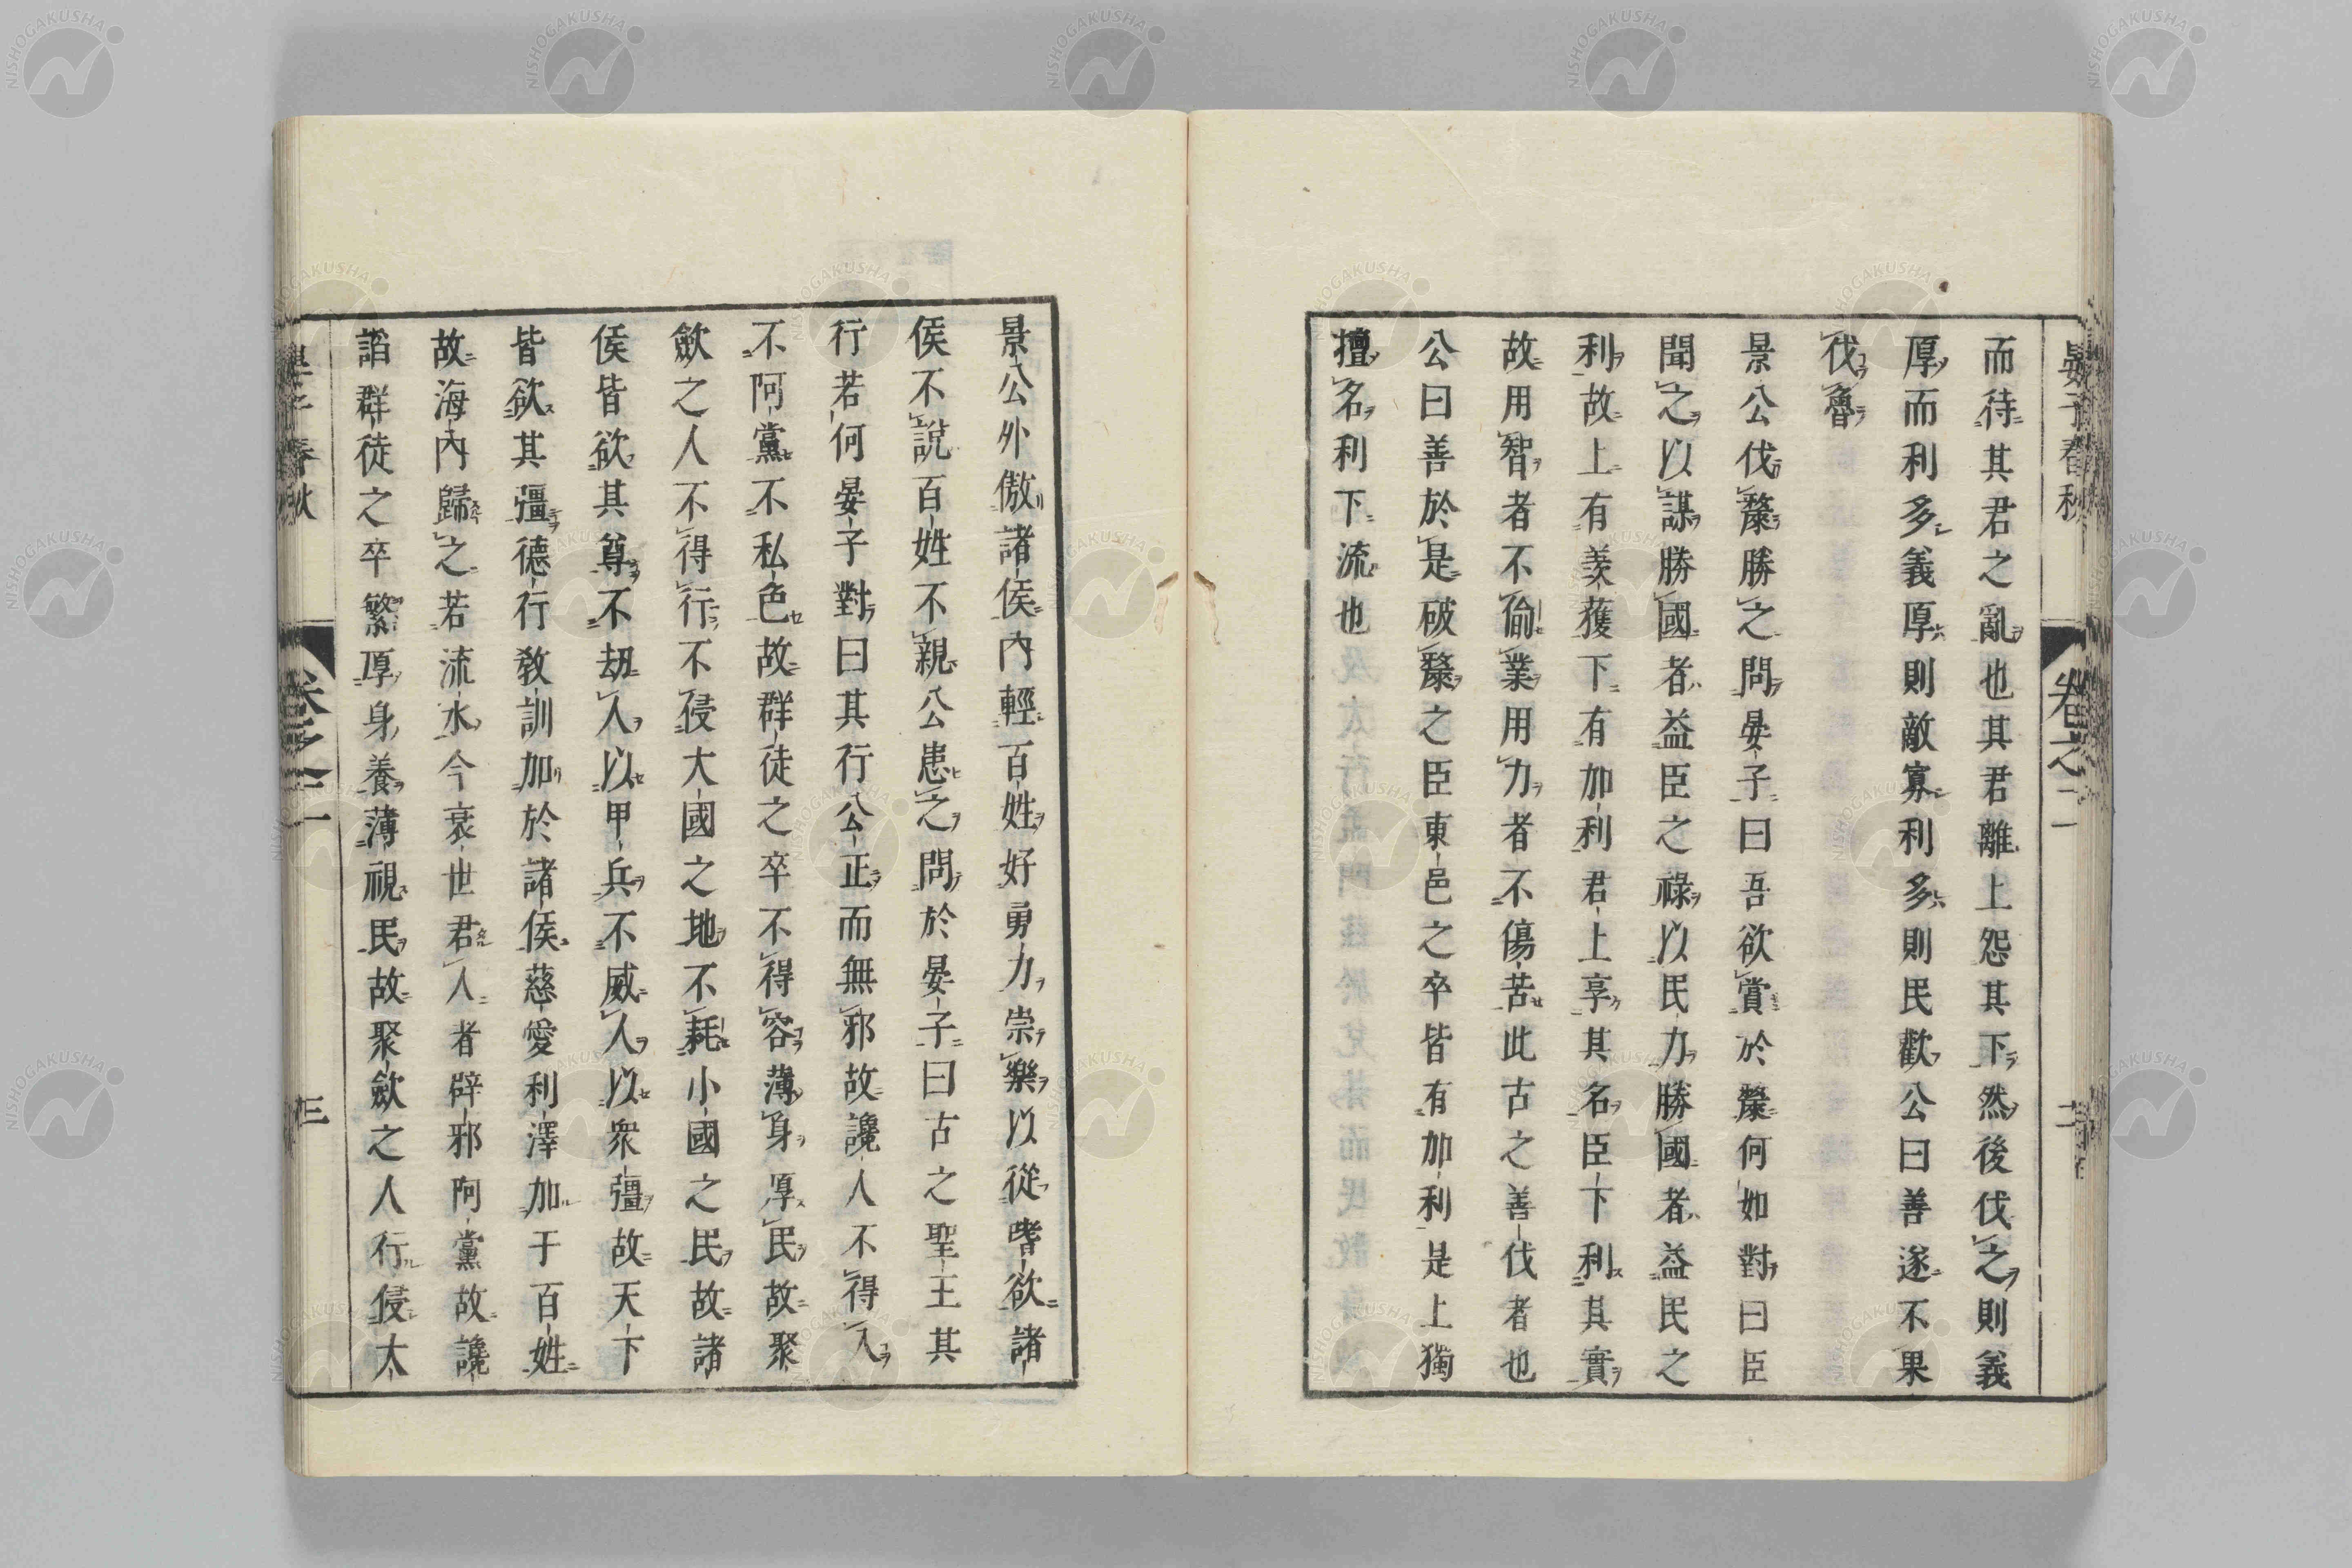 晏子春秋
卷之二
而待其君之亂也其君離上怨其下然後伐之則義
厚而利多義厚則敵寡利多則民歡公曰善遂不果
伐魯
景公伐斄勝之問晏子曰吾欲賞於斄何如對曰臣
聞之以謀勝國者益臣之祿以民力勝國者益民之
利故上有羨獲下有加利君上享其名臣下利其實
故用智者不偷業用力者不傷苦此古之善伐者也
公曰善於是破斄之臣東邑之卒皆有加利是上獨
擅名利下流也
景公外傲諸侯內輕百姓好勇力崇樂以從嗜欲諸
侯不說百姓不親公患之問於晏子曰古之聖王其
行若何晏子對曰其行公正而無邪故讒人不得入
不阿黨不私色故群徒之卒不得容薄身厚民故聚
歛之人不得行不侵大國之地不耗小國之民故諸
侯皆欲其尊不刼人以甲兵不威人以眾彊故天下
皆欲其彊德行敎訓加於諸侯慈愛利澤加于百姓
故海內歸之若流水今衰世君人者辟邪阿黨故讒
謟群徒之卒繁厚身養薄視民故聚歛之人行侵太
三
NISHOGAKUSHA